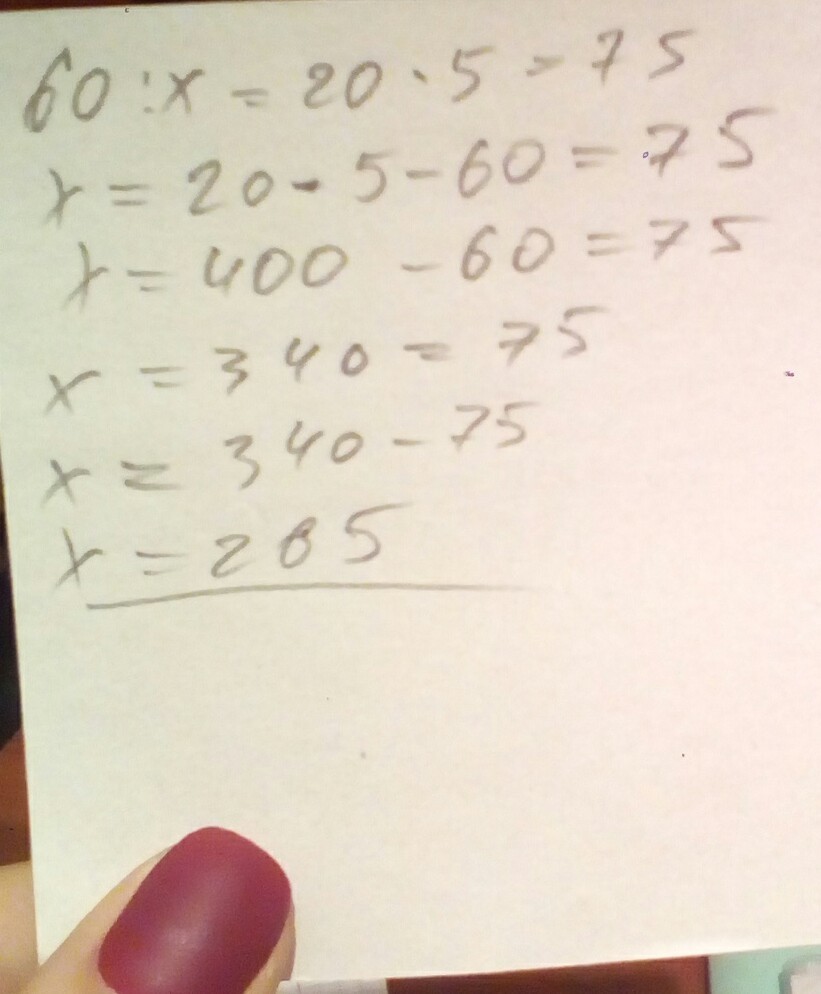 60 : x = 20 · 5 = 75
x = 20 - 5 - 60 = 75
x = 400 - 60 = 75
x = 340 = 75
x = 340 - 75
x = 265